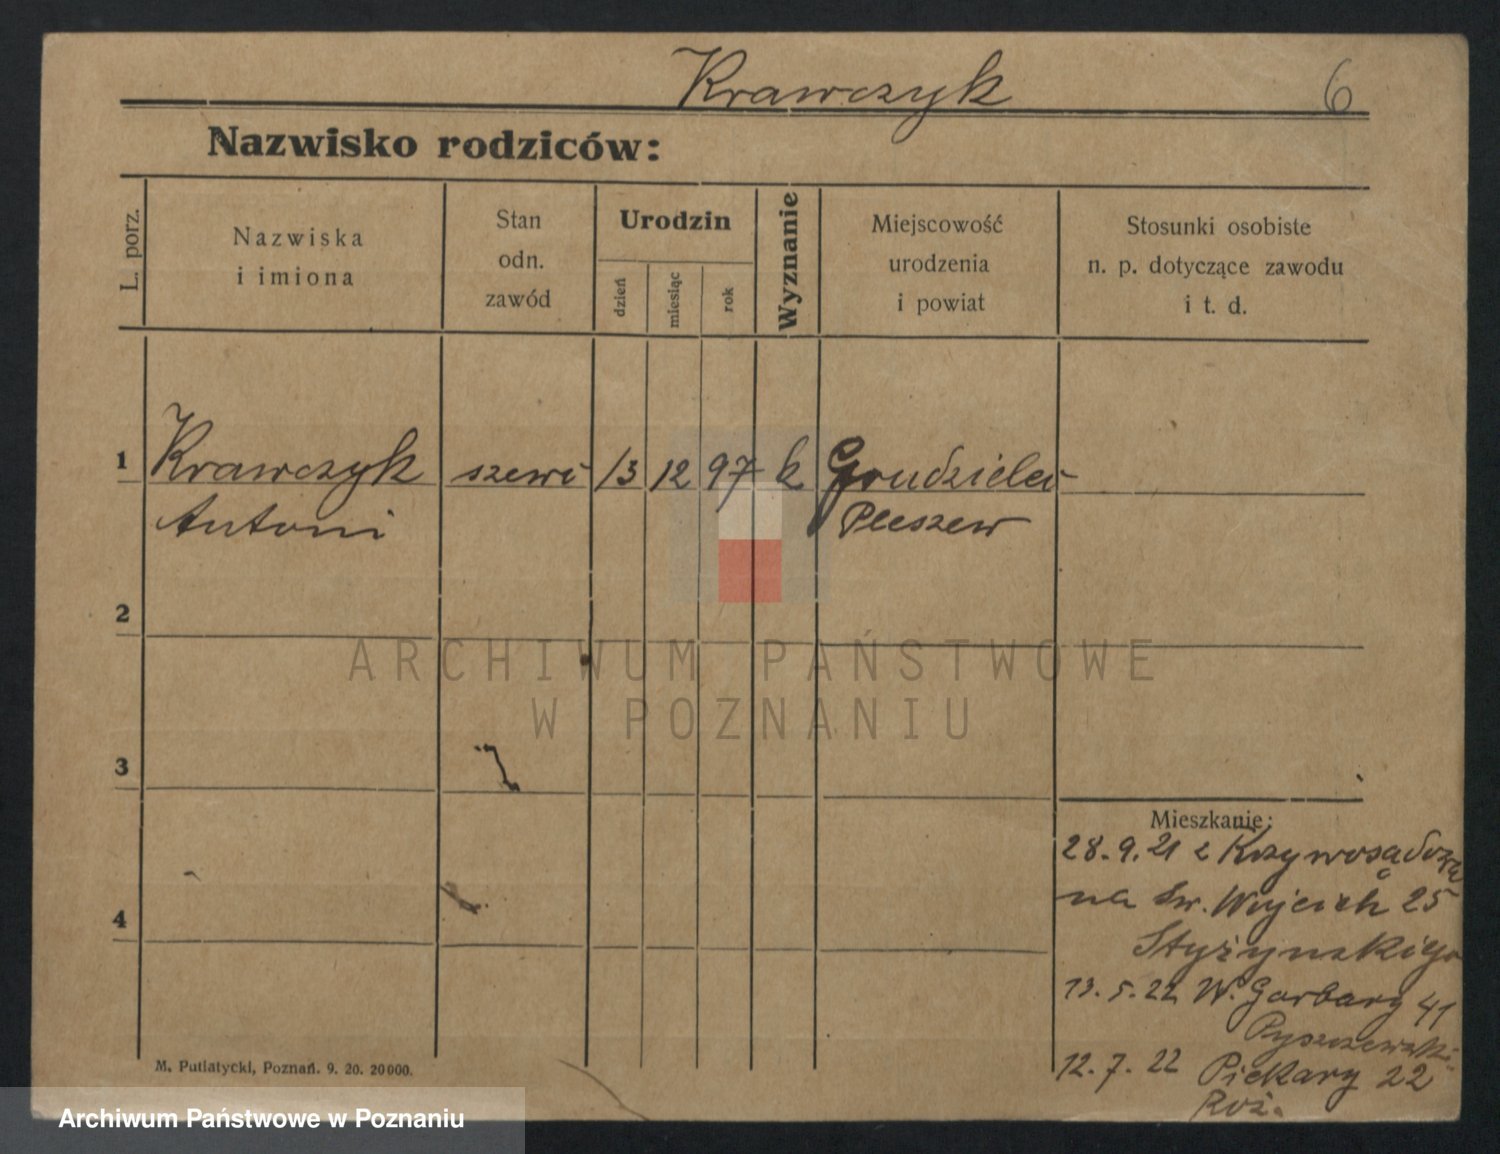 Krawczyk 6
Nazwisko rodziców:
L. porz.
Nazwiska
i imiona
Stan
odn.
zawód
Urodzin
dzień
miesiąc
rok
Wyznanie
Miejscowość
urodzenia
i powiat
Stosunki osobiste
n. p. dotyczące zawodu
i t. d.
1 Krawczyk szewc 13 12 97 k Grudzielec
Antoni Pleszew
2
3
4
ARCHIWUM PAŃSTWOWE
W POZNANIU
Mieszkanie:
28.9.21 z Krzywosądowa
na Św. Wojciech 25
13.5.22 W. Garbary 41
12.7.22 Piekary 22
M. Putiatycki, Poznań. 9. 20. 20000.
Archiwum Państwowe w Poznaniu